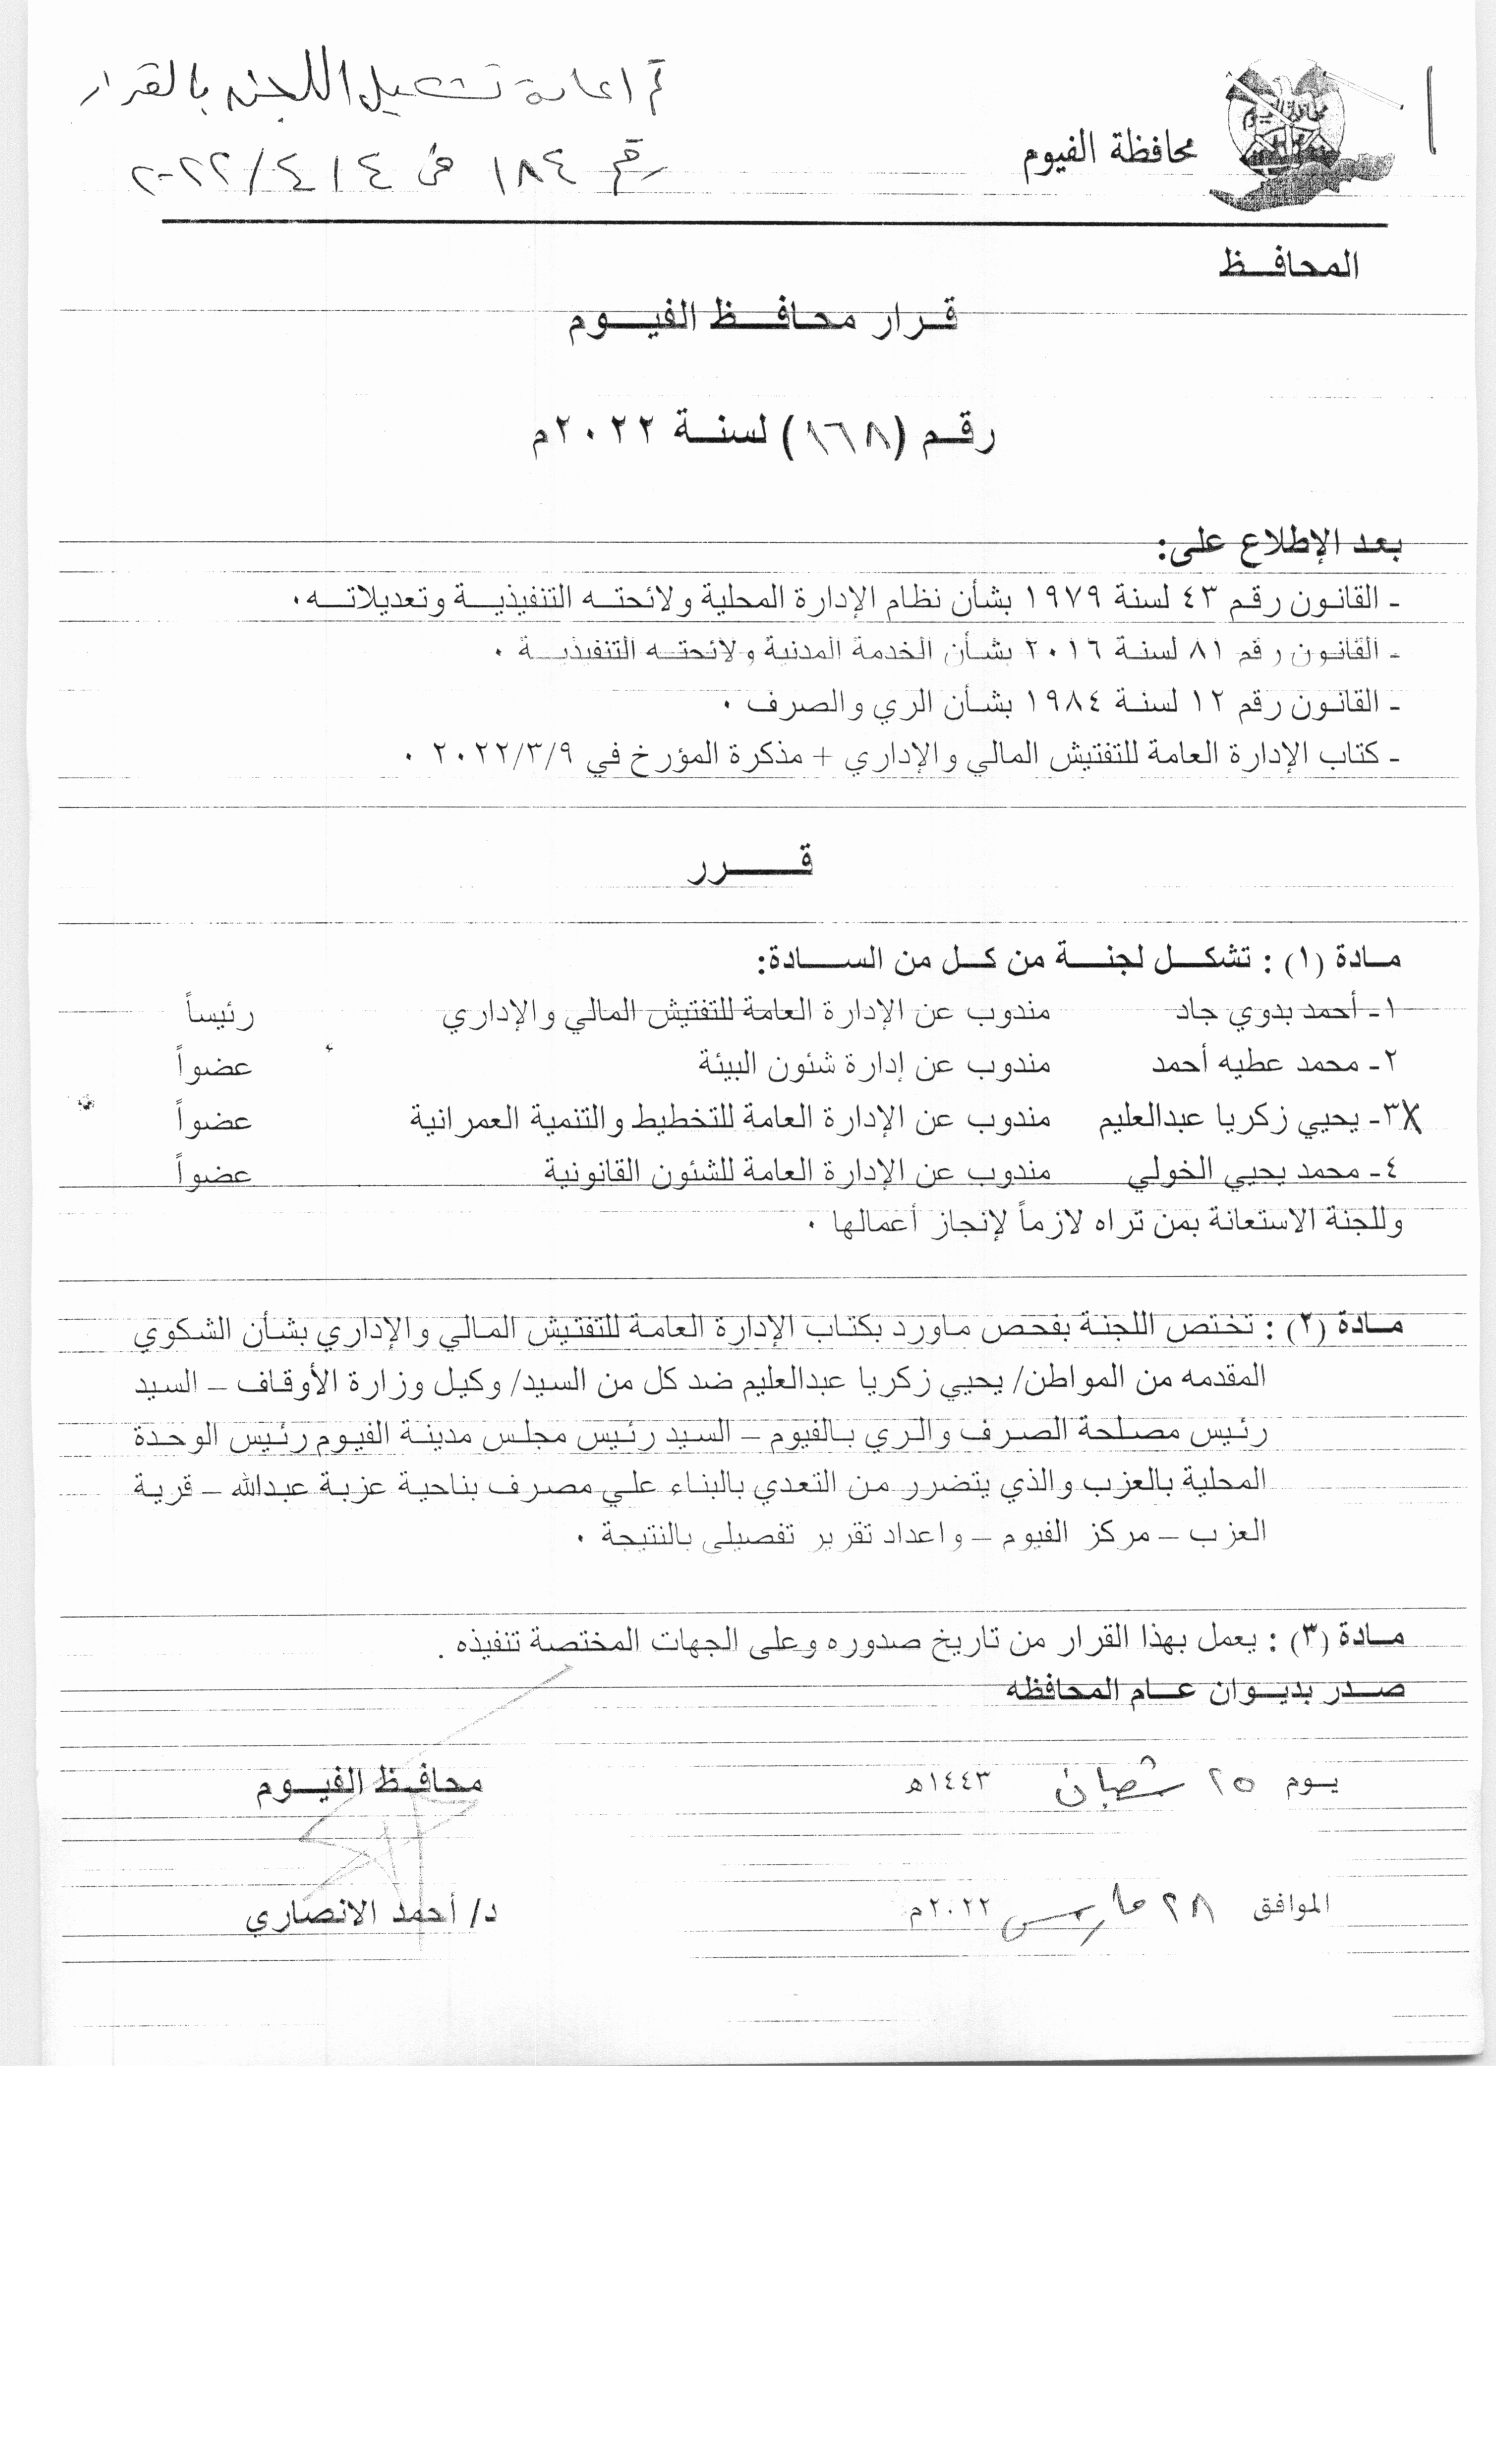 تم اعادة تشكيل اللجنه بالقرار
رقم ١٨٤ فى ٤/٤/٢٠٢٢
محافظة الفيوم
المحافـــظ
قـرار محافـــظ الفيـــوم
رقـم (١٦٨) لسنـة ٢٠٢٢م
بعد الإطلاع على:
ـ القانون رقم ٤٣ لسنة ١٩٧٩ بشأن نظام الإدارة المحلية ولائحته التنفيذية وتعديلاته٠
ـ القانون رقم ٨١ لسنة ٢٠١٦ بشأن الخدمة المدنية ولائحته التنفيذية ٠
ـ القانون رقم ١٢ لسنة ١٩٨٤ بشأن الري والصرف ٠
ـ كتاب الإدارة العامة للتفتيش المالي والإداري + مذكرة المؤرخ في ٢٠٢٢/٣/٩ ٠
قـــــرر
مـادة (١) : تشكـل لجنـة من كـل من الســادة:
١ـ أحمد بدوي جاد مندوب عن الإدارة العامة للتفتيش المالي والإداري رئيساً
٢ـ محمد عطيه أحمد مندوب عن إدارة شئون البيئة عضواً
٣ـ يحيي زكريا عبدالعليم مندوب عن الإدارة العامة للتخطيط والتنمية العمرانية عضواً
٤ـ محمد يحيي الخولي مندوب عن الإدارة العامة للشئون القانونية عضواً
وللجنة الاستعانة بمن تراه لازماً لإنجاز أعمالها ٠
مـادة (٢) : تختص اللجنة بفحص ماورد بكتاب الإدارة العامة للتفتيش المالي والإداري بشأن الشكوي
المقدمه من المواطن/ يحيي زكريا عبدالعليم ضد كل من السيد/ وكيل وزارة الأوقاف – السيد
رئيس مصلحة الصرف والري بالفيوم – السيد رئيس مجلس مدينة الفيوم رئيس الوحدة
المحلية بالعزب والذي يتضرر من التعدي بالبناء علي مصرف بناحية عزبة عبدالله – قرية
العزب – مركز الفيوم – واعداد تقرير تفصيلى بالنتيجة ٠
مـادة (٣) : يعمل بهذا القرار من تاريخ صدوره وعلى الجهات المختصة تنفيذه .
صـدر بديـوان عـام المحافظه
يـوم ٢٥ شعبان ١٤٤٣هـ
محافـظ الفيــوم
الموافق ٢٨ مارس ٢٠٢٢م
د/ أحمد الانصاري